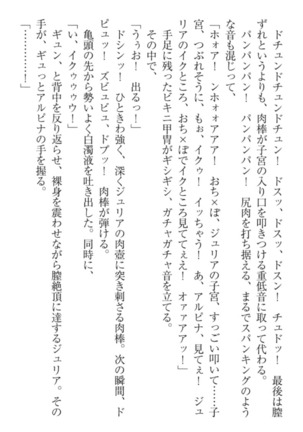 ドチュンドチュンドチュン！　ドスッ、ドスッ、ドスン！　チュドッ！　最後は膣
ずれというよりも、肉棒が子宮の入り口を叩きつける重低音に取って代わる。
　パンパンパン！　パンパンパン！　尻肉を打ち据える、まるでスパンキングのよう
な音も混じって、
「ホォア！　ンホォアアア！　おち×ぽ、ジュリアの子宮、すっごい叩いて……子
宮、つぶれそうに、もぉ、イクゥ！　イッちゃう！　あ、アルビナ、見てぇ！　ジュ
リアのイクところ、おち×ぽでイクところ見ててぇえ！　オァアアアッ！」
　手足に残ったビキニ甲冑がギシギシ、ガチャガチャ音を立てる。
　その中で、
「うぅお！　出るっ！」
　ドシンッ！　ひときわ強く、深くジュリアの肉壺に突き刺さる肉棒。次の瞬間、ド
ビュッ！　ズビュビュ、ドブッ！　肉棒が弾ける。
　亀頭の先から勢いよく白濁液を吐き出した。同時に、
「い、イクゥウウウ！」
　ギュン、と背中を反り返らせ、裸身を震わせながら膣絶頂に達するジュリア。その
手が、ギュっとアルビナの手を握る。
「…………！」